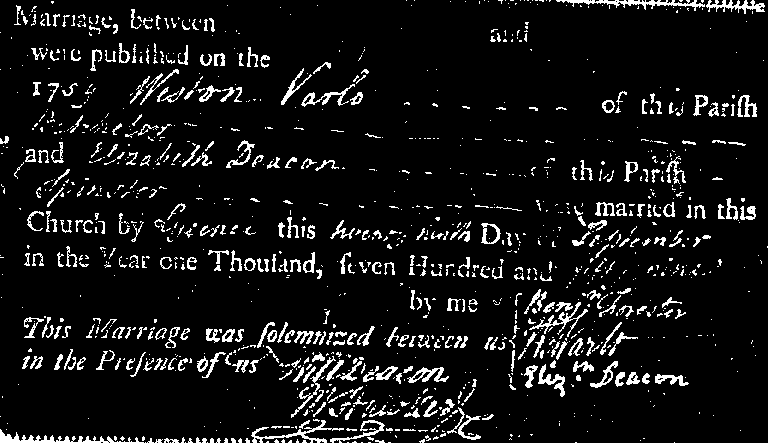 Marriage, between and
were publiſhed on the
1759 Weston Varlo of this Pariſh
Batchelor
and Elizabeth Deacon of this Pariſh
Spinster were married in this
Church by Lycence this twenty ninth Day of September
in the Year one Thouſand, ſeven Hundred and fifty nine
by me Benjn Forester
This Marriage was ſolemnized between us W Varlo
in the Preſence of us Will Deacon Elizth Deacon